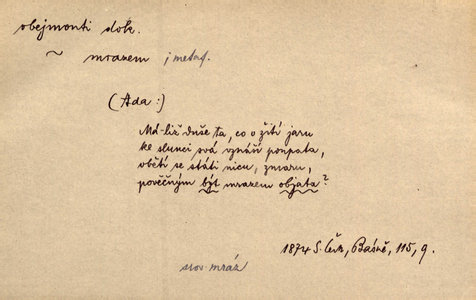 obejmouti dok.
~ mrazem ; metaf.
(Ada:)
Má-liž duše ta, co o žití jaru
ke slunci svá vznáší poupata,
obětí se státi nicu, zmaru,
pověčným být mrazem objata?
1874 S. Čech, Básně, 115, 9.
srov. mráz